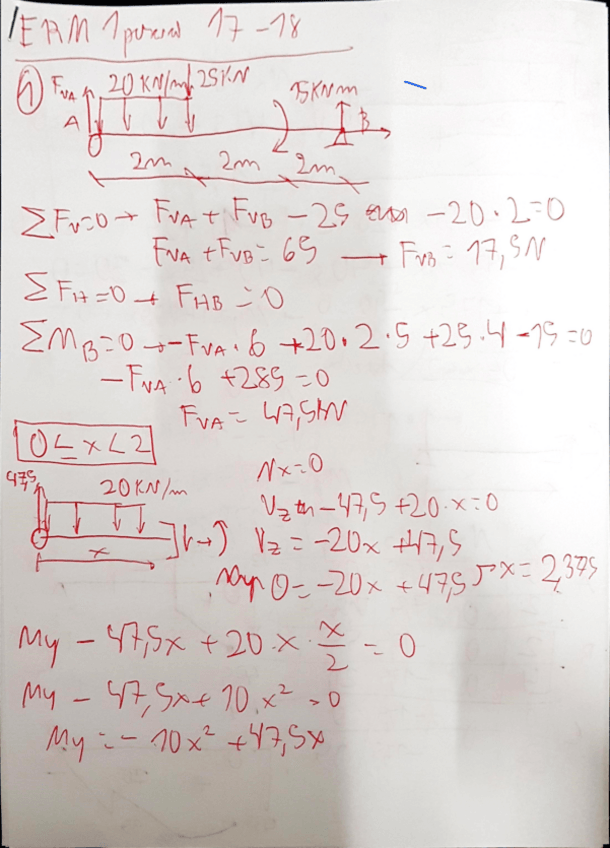 ERM 1 parcial 17-18
① FVA 20 KN/m 25KN 15KNm
A B
2m 2m 2m
ΣFv=0 → FVA + FVB - 25 - 20·2=0
FVA + FVB = 65 → FVB = 17,5N
ΣFH=0 → FHB = 0
ΣMB=0 → -FVA·6 +20·2·5 +25·4 -15=0
-FVA·6 +285 =0
FVA = 47,5kN
0≤x<2
47,5 20KN/m
x
Nx=0
Vz -47,5 +20·x=0
Vz = -20x +47,5
0= -20x +47,5 x= 2,375
My - 47,5x + 20·x·x/2 = 0
My - 47,5x + 10·x² = 0
My = -10x² +47,5x